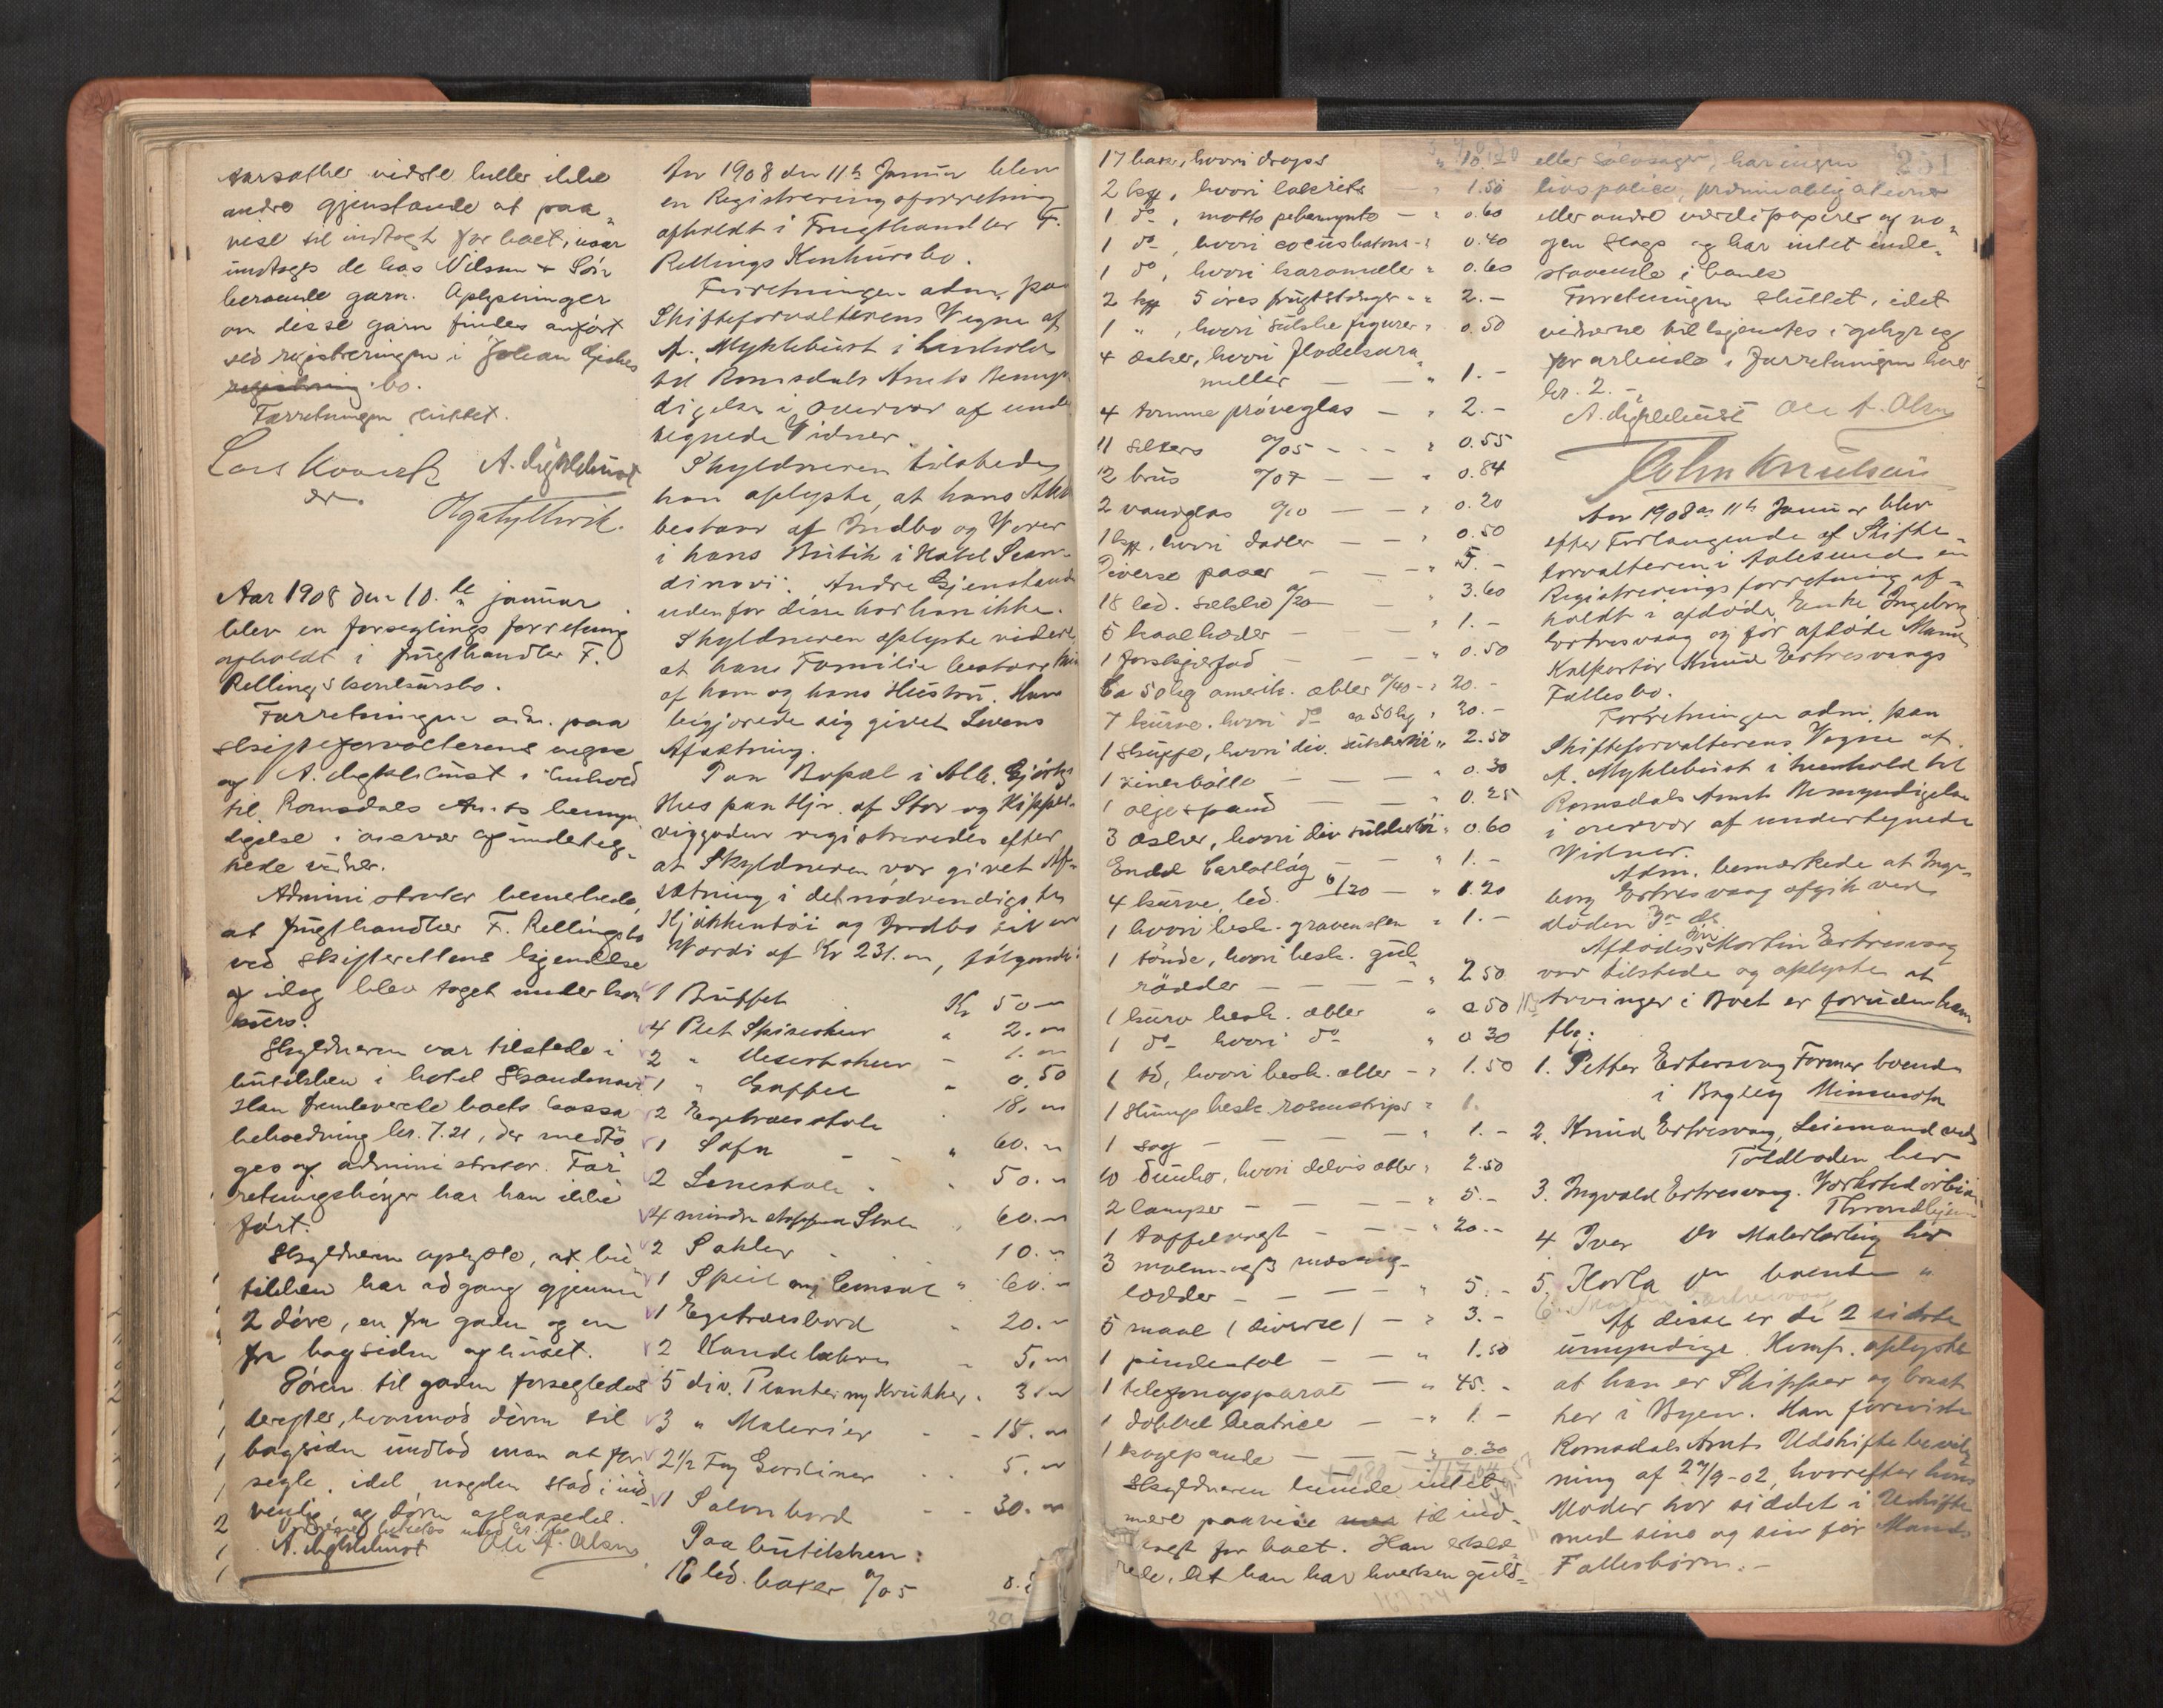 aarsather vidste heller ikke
andre gjenstande at paa„
vise til indtægt for boet, naar
undtages de hos Nilsen & Søn
beroende garn. Oplysninger
om disse garn findes anført
ved registreringen i Johan
bo.
Forretningen sluttet.
A. Myklebust
Aar 1908 den 10. de januar
blev en forseglings forretning
afholdt i frugthandler F.
Rellings konkursbo.
Forretningen adm. paa
skifteforvalterens vegne
af A. Myklebust i henhold
til Romsdals Amts bemyn
digelse i overvær af underteg„
nede vidner.
Administrator bemerkede,
at frugthandler F. Rellings bo
ved skifterettens kjendelse
af idag blev taget under kon
kurs.
Skyldneren var tilstede i
butikken i hotel Skandinavi
Han fremleverede boets kassa
beholdning kr. 7.21, der medto
ges af administrator. For
retningsbøger har han ikke
ført.
Skyldneren oplyste, at bu„
tikken har adgang gjennem
2 døre, en fra gaden og en
fra bagsiden af huset.
Døren til gaden forsegledes
derefter, hvormod døren til
bagsiden undlod man at for
segle, idet nøglen stod i ind
vendig og døren aflaasedes.
A. Myklebust Ole A. Olsen
Aar 1908 den 11te Januar blev
en Registreringsforretning
afholdt i Frugthandler F.
Rellings Konkursbo.
Forretningen adm. paa
Skifteforvalterens Vegne af
A. Myklebust i henhold
til Romsdals Amts Bemyn
digelse i overvær af under
tegnede Vidner.
Skyldneren tilstede
han oplyste, at hans
bestaar af Indbo og Varer
i hans Butik i Hotel Scan-
dinavi. Andre Gjenstande
udenfor disse har han ikke.
Skyldneren oplyste videre
at hans Familie bestaar kun
af ham og hans Hustru. Han
begjærede sig givet Lovens
Afsætning.
Paa Bopæl i
Hus paa Hjr. af Stor og Kipper-
viggaden registreredes efter
at Skyldneren var givet Af-
sætning i det nødvendigste
Kjøkkentøi og Indbo til en
Værdi af Kr 231.00, følgende:
1 Buffet Kr 50 00
4 Plet Spiseskeer " 2.00
2 " Dessertskeer - 1.00
1 " Gaffel " 0.50
2 Egetræsstole 18.00
1 Sofa " 60.00
2 Lenestole " 50.00
4 mindre stoppede Stole " 60.00
2 Søkler - 10.00
1 Speil m/ Consol " 60.00
1 Egetræsbord - 20.00
2 Kandelabre - 5.00
5 div. Planter m/ Krukker. 3.00
3 " Malerier - - 15.00
2½ Fag Gardiner - - 5.00
1 Salonbord - - 30.00
Paa butikken:
16 led. baxer a/05
17 baxer, hvori drops " 10.-
2 kpp, hvori lakrits - " 1.50
1 do, motto pebermynte - " 0.60
1 do, hvori cocusbatone - " 0.40
1 do, hvori karameller " 0.60
2 kpp 5 øres frugtstænger - " 2.-
1 " , hvori sukkefigurer " 0.50
4 æsker, hvori flødekara„
meller — — " 1.-
4 tomme prøveglas — " 2.-
11 selters a/05 - - - " 0.55
12 brus a/07 — — " 0.84
2 vandglas a/10 — — " 0.20
1 kpp, hvori dadler — — " 0.50
Diverse poser — — " 5.-
18 led. sække a/20 — " 3.60
5 kaalhoder — — " 1.-
1 forskjærfad — — " 0.50
Ca 50 kg amerik. æbler a/40 - " 20.-
7 kurve. hvori do ca 50 kg " 20.-
1 skuffe, hvori div. sukkertøi " 2.50
1 — — " 0.30
1 — — " 0.25
3 æsker, hvori div sukkertøi " 0.60
Endel — — " 1.-
4 kurve, led. a/30 — " 1.20
1 hvori besk. gravensten " 1.-
1 tønde, hvori besk. gul„
rødder — — — " 2.50
1 kurv besk. æbler " 2.50
1 do hvori do " 0.30
1 td, hvori besk. æbler - " 1.50
1 slump besk. rosenstrips " 1.
1 sag — — — " 1.-
10 dunke, hvori delvis æbler " 2.50
2 lamper — — — " 5.-
1 taffelvegt — — " 20.-
3 malm- og 3 messing-
lodder — — — " 5.-
5 maal (diverse) — " 3.-
1 pindestol — — " 1.50
1 telefonapparat — " 45.-
1 dobbel beatrice — " 1.-
1 kogepande — — " 0.30
Skyldneren kunde intet
mere paavise til ind-
tægt for boet. Han erklæ
rede, at han har hverken guld-
251
eller sølvsager, har ingen
livspolice, præmieobligationer
eller andre værdipapirer af no„
gen slags og har intet inde„
staaende i bank
Forretningen sluttet, idet
vidnerne tilkjendtes i gebyr og
for arbeide i forretningen hver
kr. 2.-
A. Myklebust Ole A. Olsen
John Knutsen
Aar 1908 11te Januar blev
efter Forlangende af Skifte„
forvalteren i Aalesund en
Registreringsforretning af„
holdt i afdøde Enke Ingeborg
Ertresvaag og før afdøde Mand
Kolportør Knud Ertresvaags
Fællesbo.
Forretningen adm. paa
Skifteforvalterens Vegne af
A. Myklebust i henhold til
Romsdals Amts Bemyndigelse
i overvær af undertegnede
Vidner.
Adm. bemærkede at Inge„
borg Ertresvaag afgik ved
døden 3die ds
Afdødes Søn Martin Ertresvaag
var tilstede og oplyste at
Arvinger i Boet er foruden ham
flg:
1. Petter Ertresvaag Farmer boende
i Bagley Minnesota
2. Knud Ertresvaag, Leiemand ved
Toldboden her
3. Ingvald Ertresvaag. Værkstedarbei
Throndhjem
4 Iver Do Malerlærling her
5. Karla Do boende "
Af disse er de 2 sidste
umyndige. Komp. oplyste
at han er Skipper og bosat
her i Byen. Han foreviste
Romsdals Amts Udskiftebevilg
ning af 27/9-02, hvorefter hans
Moder har siddet i Uskifte
med sine og sin før Mands
Fællesbørn.-